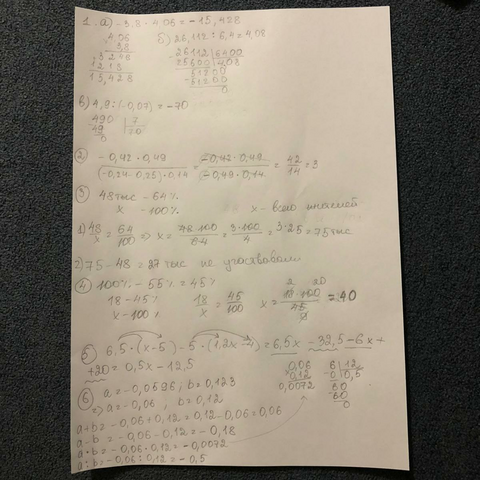 1. а) -3.8 · 4.06 = -15,428
4.06
3.8
3248
1218
15,428
б) 26,112 : 6,4 = 4,08
26112 | 6400
25600 | 408
51200
51200
0
в) 4,9 : (-0,07) = -70
490 | 7
49 | 70
0
2 -0,42 · 0,49 / (-0.24-0,25) · 0.14 = -0,42 · 0,49 / -0,49 · 0,14 = 42/14 = 3
3 48 тыс - 64%
x - 100% x - всего
1) 48/x = 64/100 => x = 48·100/64 = 3·100/4 = 3·25 = 75 тыс
2) 75 - 48 = 27 тыс не участвовали
4 100% - 55% = 45%
18 - 45%
x - 100%
18/x = 45/100
x = 18·100/45 = 40
2 20
5 6,5 · (x-5) - 5 · (1,2x-4) = 6,5x - 32,5 - 6x +
+20 = 0,5x - 12,5
6 a = -0,0596; b = 0,123
=> a = -0,06, b = 0,12
a+b = -0,06+0,12 = 0,12-0,06 = 0,06
a-b = -0,06-0,12 = -0,18
a·b = -0,06·0,12 = -0,0072
a:b = -0,06:0,12 = -0,5
0,06
0,12
0,0072
6 | 12
0 | 0,5
60
60
0